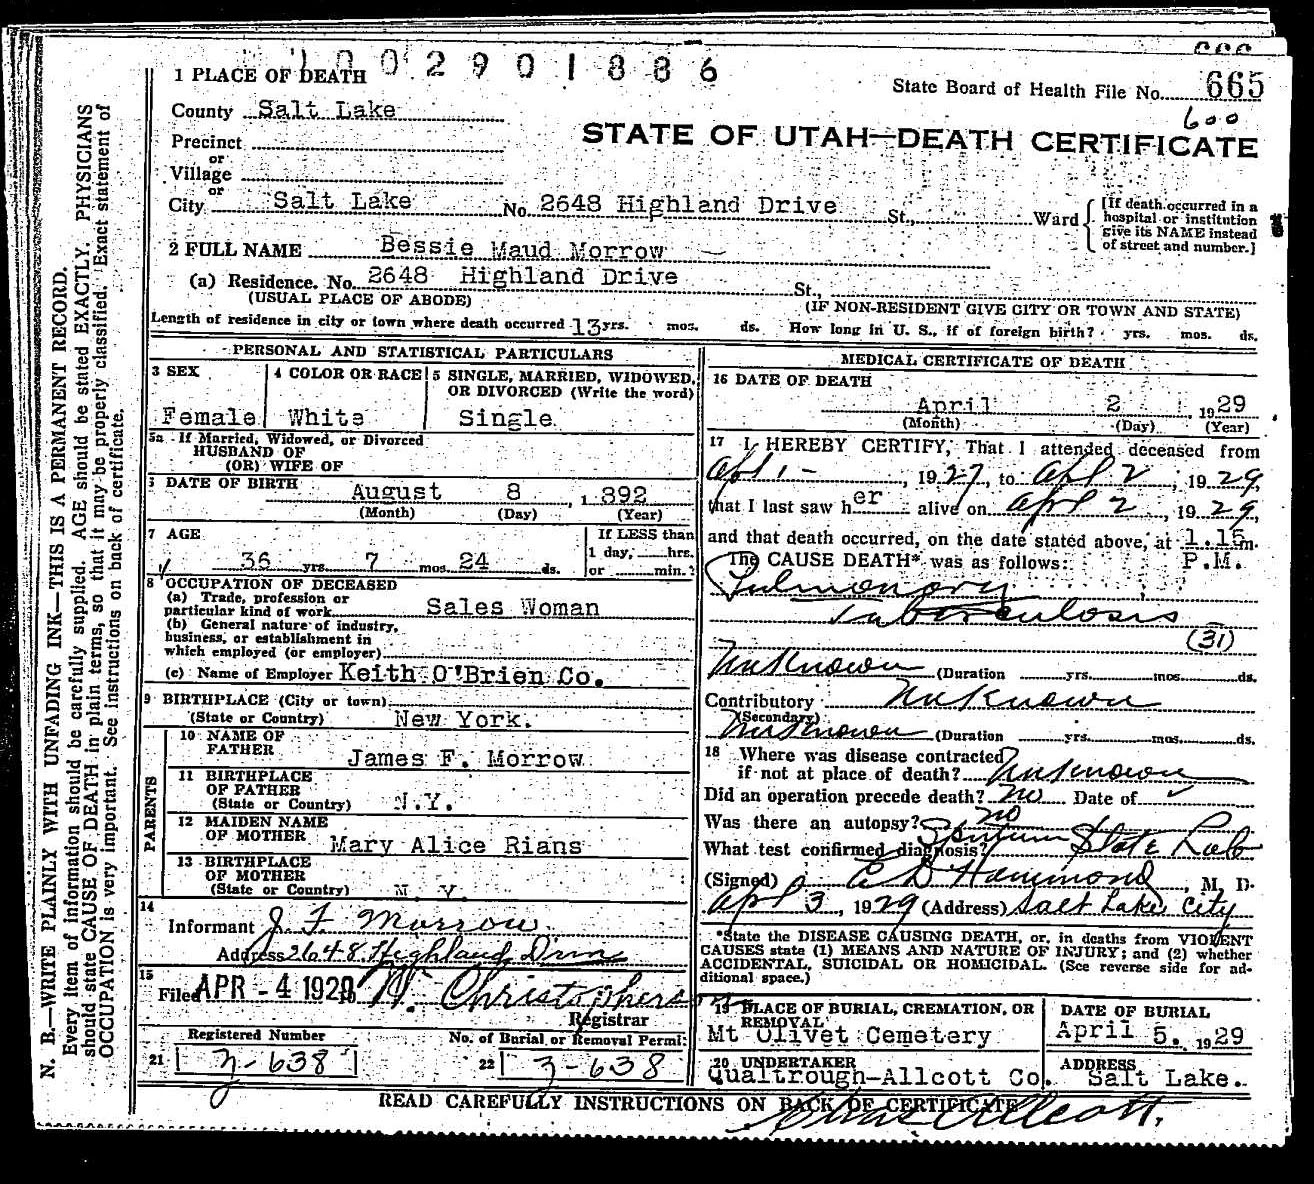 1002901886
1 PLACE OF DEATH
State Board of Health File No. 665
600
County Salt Lake
STATE OF UTAH—DEATH CERTIFICATE
Precinct
or
Village
or
City Salt Lake No. 2648 Highland Drive St., Ward
[If death occurred in a
hospital or institution
give its NAME instead
of street and number.]
2 FULL NAME Bessie Maud Morrow
(a) Residence. No. 2648 Highland Drive St.,
(USUAL PLACE OF ABODE) (IF NON-RESIDENT GIVE CITY OR TOWN AND STATE)
Length of residence in city or town where death occurred 13 yrs. mos. ds. How long in U. S., if of foreign birth? yrs. mos. ds.
PERSONAL AND STATISTICAL PARTICULARS
3 SEX
Female
4 COLOR OR RACE
White
5 SINGLE, MARRIED, WIDOWED,
OR DIVORCED (Write the word)
Single
5a If Married, Widowed, or Divorced
HUSBAND OF
(OR) WIFE OF
DATE OF BIRTH
August 8, 1892
(Month) (Day) (Year)
7 AGE
36 yrs. 7 mos. 24 ds.
If LESS than
1 day, hrs.
or min.?
8 OCCUPATION OF DECEASED
(a) Trade, profession or
particular kind of work Sales Woman
(b) General nature of industry,
business, or establishment in
which employed (or employer)
(c) Name of Employer Keith O'Brien Co.
9 BIRTHPLACE (City or town)
(State or Country) New York.
PARENTS
10 NAME OF
FATHER James F. Morrow
11 BIRTHPLACE
OF FATHER
(State or Country) N.Y.
12 MAIDEN NAME
OF MOTHER Mary Alice Rians
13 BIRTHPLACE
OF MOTHER
(State or Country) N Y.
14
Informant J F Morrow
Address 2648 Highland Drive
15
Filed APR - 4 1929 W. Christophers
Registrar
Registered Number
21 3-638
No. of Burial or Removal Permit
22 3-638
MEDICAL CERTIFICATE OF DEATH
16 DATE OF DEATH
April 2, 1929
(Month) (Day) (Year)
17 I HEREBY CERTIFY, That I attended deceased from
Apl 1-, 1927, to Apl 2, 1929,
that I last saw her alive on Apl 2, 1929,
and that death occurred, on the date stated above, at 1.15 m.
P.M.
The CAUSE DEATH* was as follows:
Pulmonary
Tuberculosis
(31)
Unknown (Duration yrs. mos. ds.
Contributory Unknown
(Secondary)
Unknown (Duration yrs. mos. ds.
18 Where was disease contracted
if not at place of death? Unknown
Did an operation precede death? No Date of
Was there an autopsy? No
What test confirmed diagnosis? Sputum State Lab
(Signed) C D Hammond, M. D.
Apl 3, 1929 (Address) Salt Lake City
*State the DISEASE CAUSING DEATH, or, in deaths from VIOLENT
CAUSES state (1) MEANS AND NATURE OF INJURY; and (2) whether
ACCIDENTAL, SUICIDAL OR HOMICIDAL. (See reverse side for ad-
ditional space.)
19 PLACE OF BURIAL, CREMATION, OR
REMOVAL
Mt Olivet Cemetery
DATE OF BURIAL
April 5. 1929
20 UNDERTAKER
Qualtrough-Allcott Co.
ADDRESS
Salt Lake.
READ CAREFULLY INSTRUCTIONS ON BACK OF CERTIFICATE
Allcott.
N. B.—WRITE PLAINLY WITH UNFADING INK—THIS IS A PERMANENT RECORD.
Every item of information should be carefully supplied. AGE should be stated EXACTLY. PHYSICIANS
should state CAUSE OF DEATH in plain terms, so that it may be properly classified. Exact statement of
OCCUPATION is very important. See instructions on back of certificate.